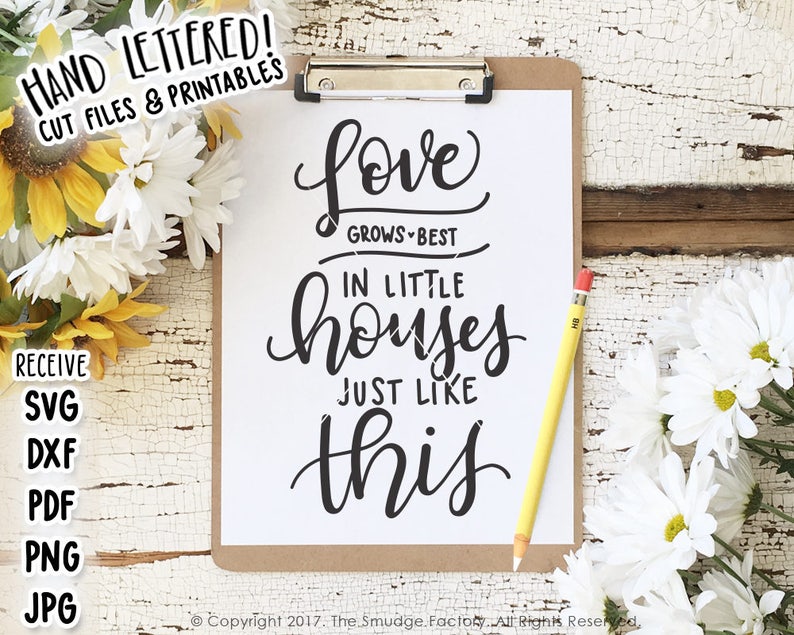 HAND LETTERED!
CUT FILES & PRINTABLES
Love
GROWS ♥ BEST
IN LITTLE
houses
JUST LIKE
this
HB
RECEIVE
SVG
DXF
PDF
PNG
JPG
© Copyright 2017. The Smudge Factory. All Rights Reserved.